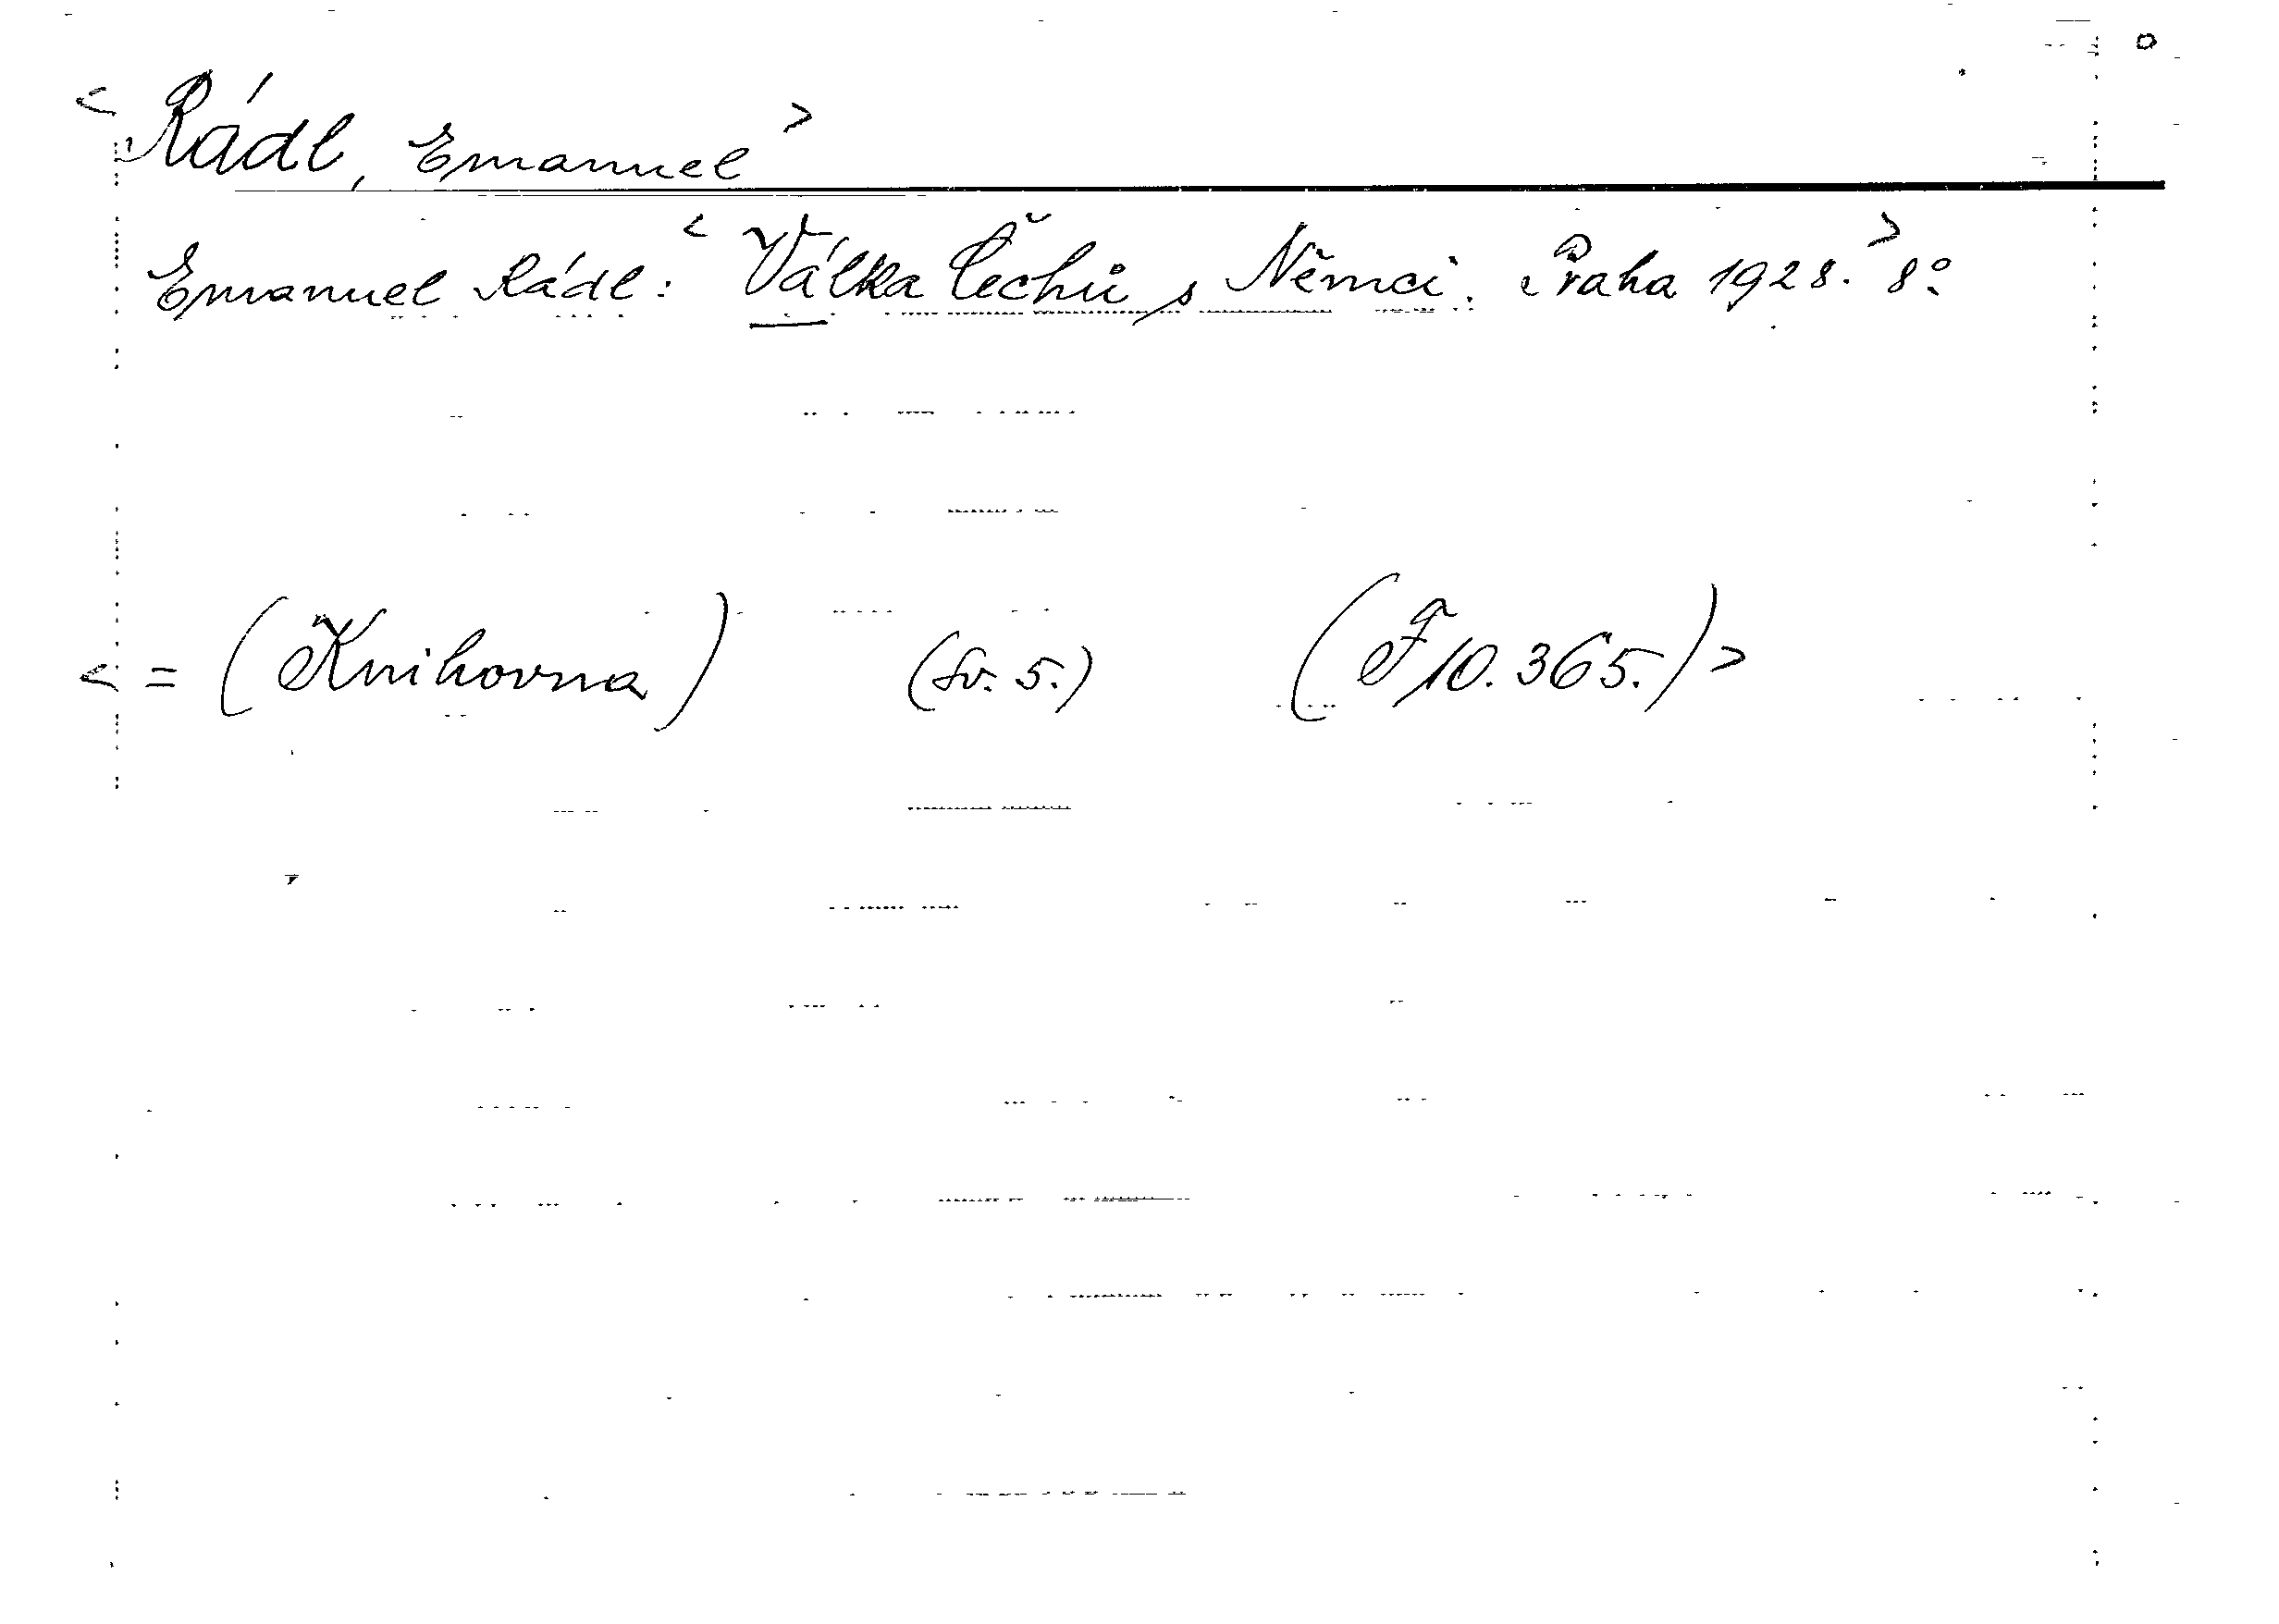 < Rádl, Emanuel >
Emanuel Rádl: < Válka Čechů s Němci. Praha 1928. > 8°
< = (Knihovna) (sv. 5.) (F 10.365.) >